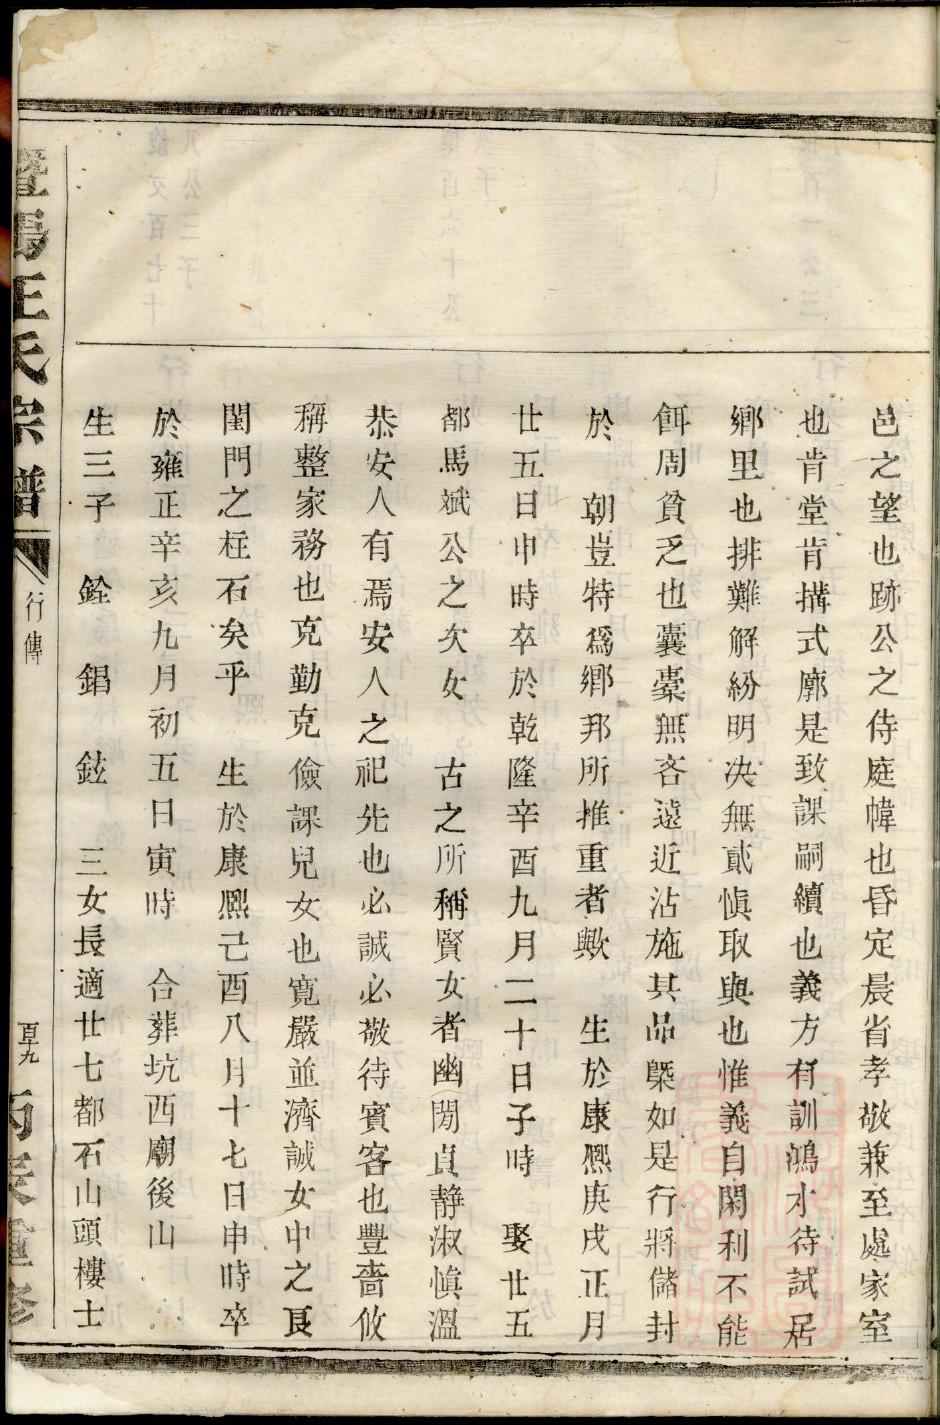 邑之望也跡公之侍庭幃也昏定晨省孝敬兼至處家室
也肯堂肯搆式廓是致課嗣續也義方有訓鴻才待試居
鄉里也排難解紛明決無貳愼取與也惟義自閑利不能
餌周貧乏也囊橐無吝遠近沾施其品槩如是行將儲封
於 朝豈特爲鄉邦所推重者歟 生於康熙庚戌正月
廿五日申時卒於乾隆辛酉九月二十日子時 娶廿五
都馬斌公之次女 古之所稱賢女者幽閒貞靜淑愼溫
恭安人有焉安人之祀先也必誠必敬待賓客也豐嗇攸
稱整家務也克勤克儉課兒女也寬嚴並濟誠女中之良
閨門之柱石矣乎 生於康熙己酉八月十七日申時卒
於雍正辛亥九月初五日寅時 合葬坑西廟後山
生三子 銓 錩 鉉 三女長適廿七都石山頭樓士
暨陽王氏宗譜 行傳 百九 丙辰重修